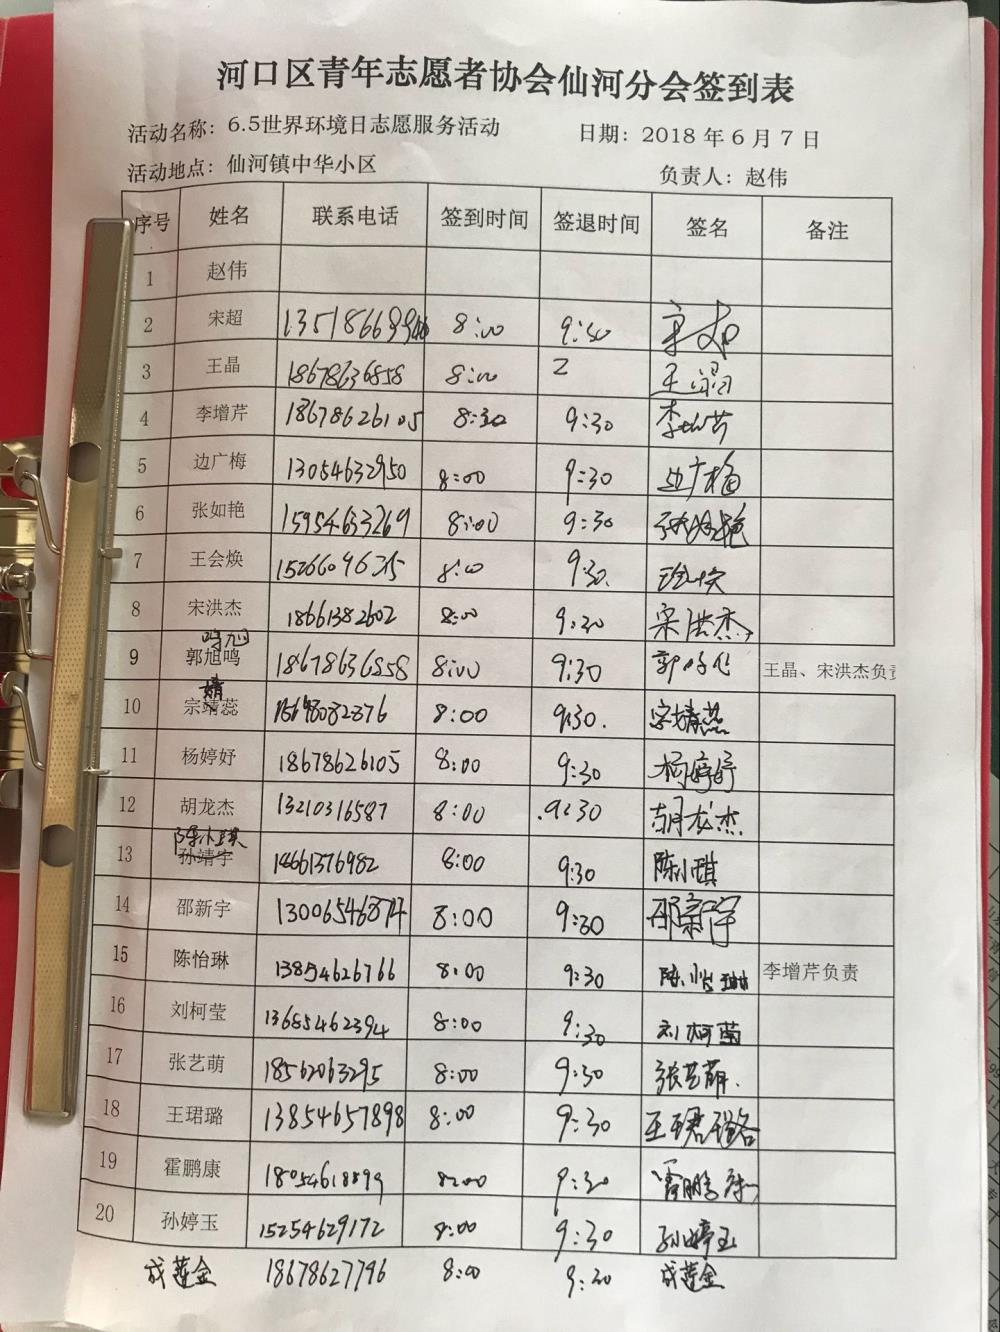 河口区青年志愿者协会仙河分会签到表
活动名称：6.5世界环境日志愿服务活动 日期：2018 年 6 月 7 日
活动地点：仙河镇中华小区 负责人：赵伟
序号 姓名 联系电话 签到时间 签退时间 签名 备注
1 赵伟
2 宋超 8:00 9:30
3 王晶 18678636858 8:00 王晶
4 李增芹 18678626105 8:30 9:30 李增芹
5 边广梅 13054632950 8:00 9:30 边广梅
6 张如艳 15954633269 8:00 9:30 张如艳
7 王会焕 8:00 9:30.
8 宋洪杰 18661382602 8:00 9:30 宋洪杰
鸣旭
9 郭旭鸣 18678636858 8:00 9:30 王晶、宋洪杰负责
婧
10 宗靖蕊 8:00 9:30. 宗婧蕊
11 杨婷妤 18678626105 8:00 9:30 杨婷妤
12 胡龙杰 13210316587 8:00 9:30 胡龙杰
陈小琪
13 孙靖宇 8:00 9:30 陈小琪
14 邵新宇 13006546874 8:00 9:30 邵新宇
15 陈怡琳 13854626766 8:00 9:30 陈怡琳 李增芹负责
16 刘柯莹 13655462394 8:00 9:30 刘柯莹
17 张艺萌 18562063295 8:00 9:30 张艺萌.
18 王珺璐 13854657898 8:00 9:30 王珺璐
19 霍鹏康 18054618899 8:00 9:30 霍鹏康
20 孙婷玉 15254629172 8:00 9:30 孙婷玉
成莲金 18678627796 8:00 9:30 成莲金